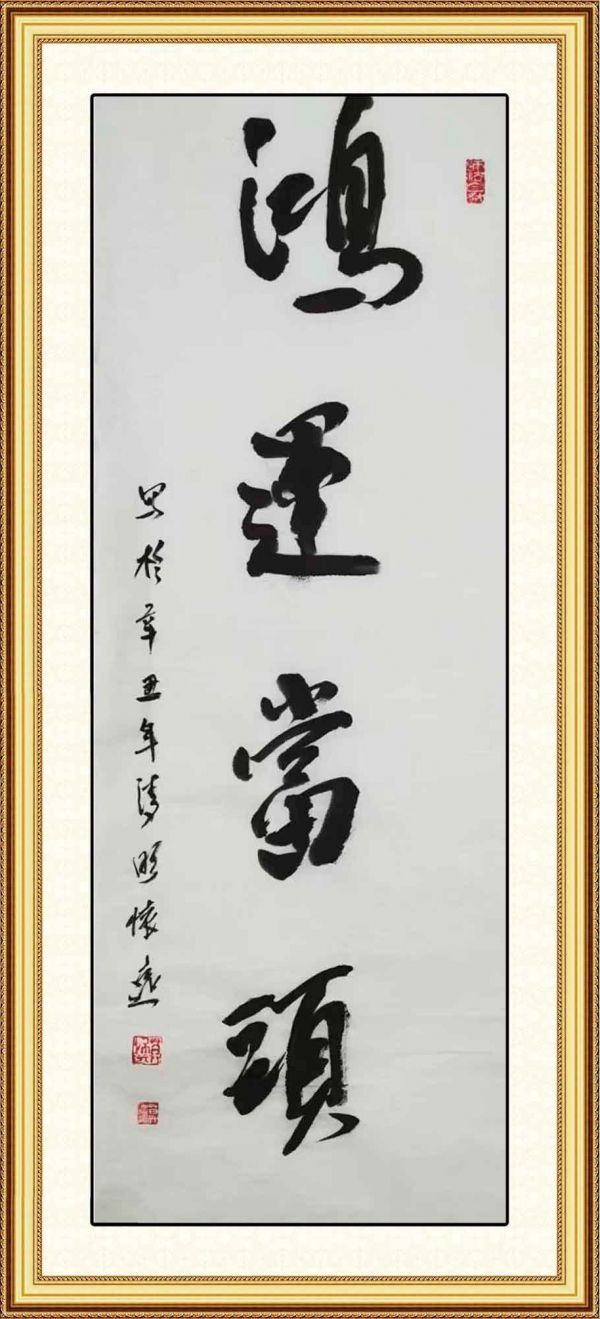 鴻運當頭
書於辛丑年清明懷